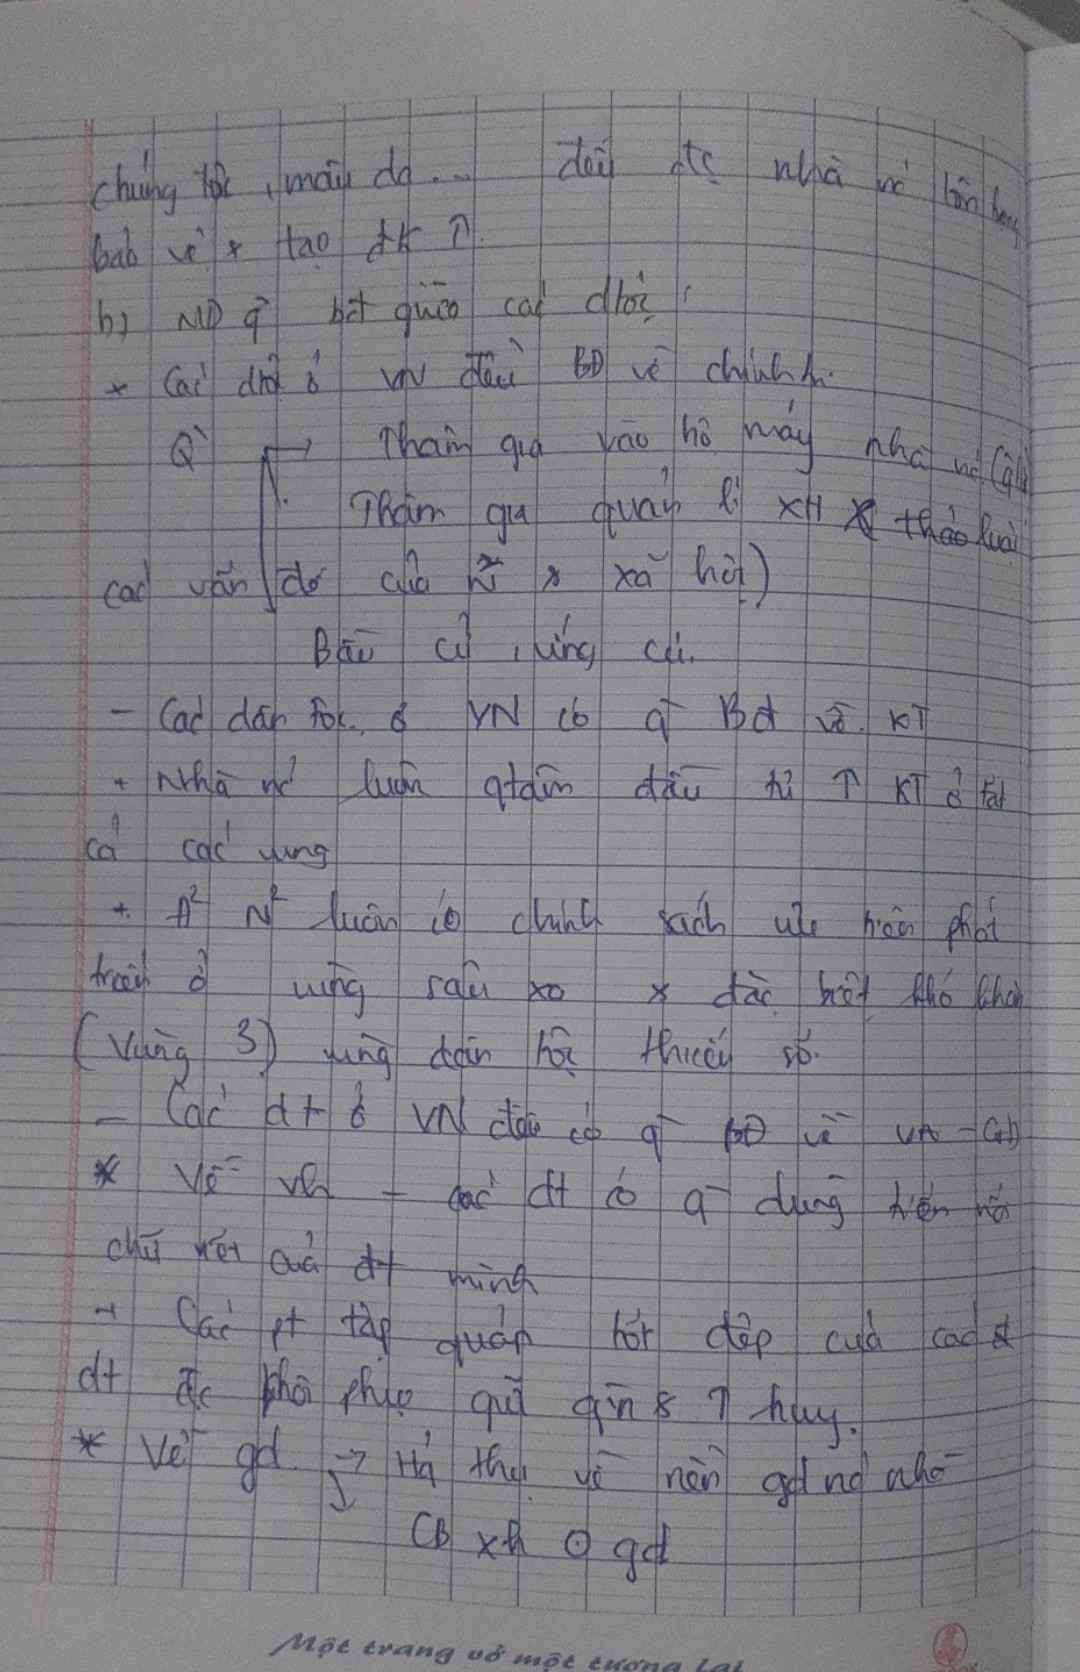 chủng tộc, màu da ... đều đc nhà nc tôn
bảo vệ & tạo đk ↑.
b) ND q` bđ giữa các dtộc:
* Các dtộ ở VN đều BĐ về chính tr.
Q` → Tham gia vào bộ máy nhà nc
Tham gia quản lí XH & thảo luận
các vấn đề của & xã hội)
Bầu cử, ứng cử.
- Các dân tộc ở VN có q` Bđ về KT
+ Nhà nc luôn qtâm đầu tư ↑ KT ở tất
cả các vung
+ Đ² N² luôn có chính sách phát
triển ở vùng sâu xa & đặc biệt khó khăn
(Vùng 3) vùng dân tộc thiểu số.
- Các dt ở VN đều có q` BĐ về vh - GD
* Về vh - các dt có q` dùng tiến nói
chữ viết của dt mình
- Các pt tập quán tốt đẹp của các
dt đc khôi phục giữ gìn & ↑ huy.
* Về gd. → Hg thụ về nền gd nc nhà
CB xh gd
Một trang vở một tương lai